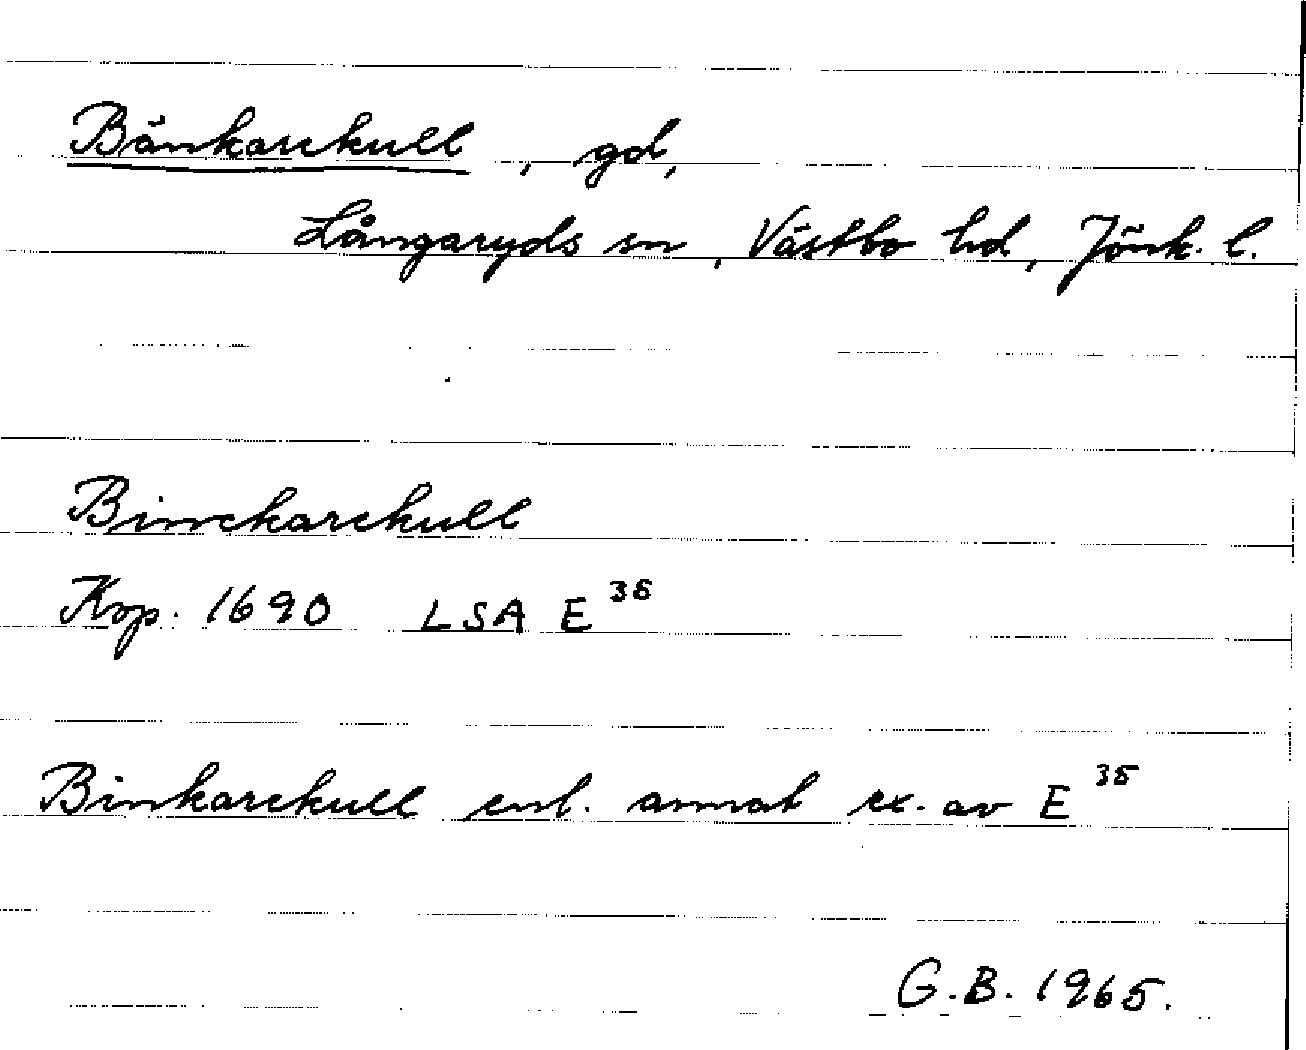 Bänkarekull, gd,
Långaryds sn, Västbo hd, Jönk. l.
Binckarekull
Kop. 1690 LSA E 35
Binkarekull enl. annat ex. av E 35
G.B. 1965.